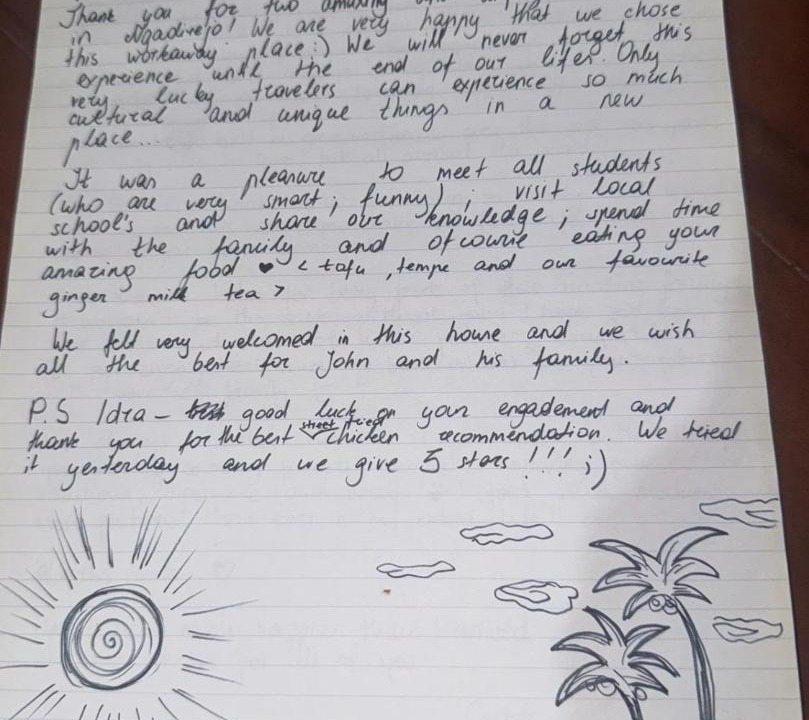 Thank you for two amazing
in Ngadirejo! We are very happy that we chose
this workaway place :) We will never forget this
experience until the end of our lifes. Only
very lucky travelers can experience so much
cultural and unique things in a new
place...
It was a pleasure to meet all students
(who are very smart ; funny) ; visit local
school's and share our knowledge ; spend time
with the family and ofcourse eating your
amazing food ♥ < tofu , tempe and our favourite
ginger milk tea >
We felt very welcomed in this house and we wish
all the best for John and his family.
P.S Idra - good luck on your engadement and
thank you for the best street fried chicken recommendation. We tried
it yesterday and we give 5 stars !!! ;)